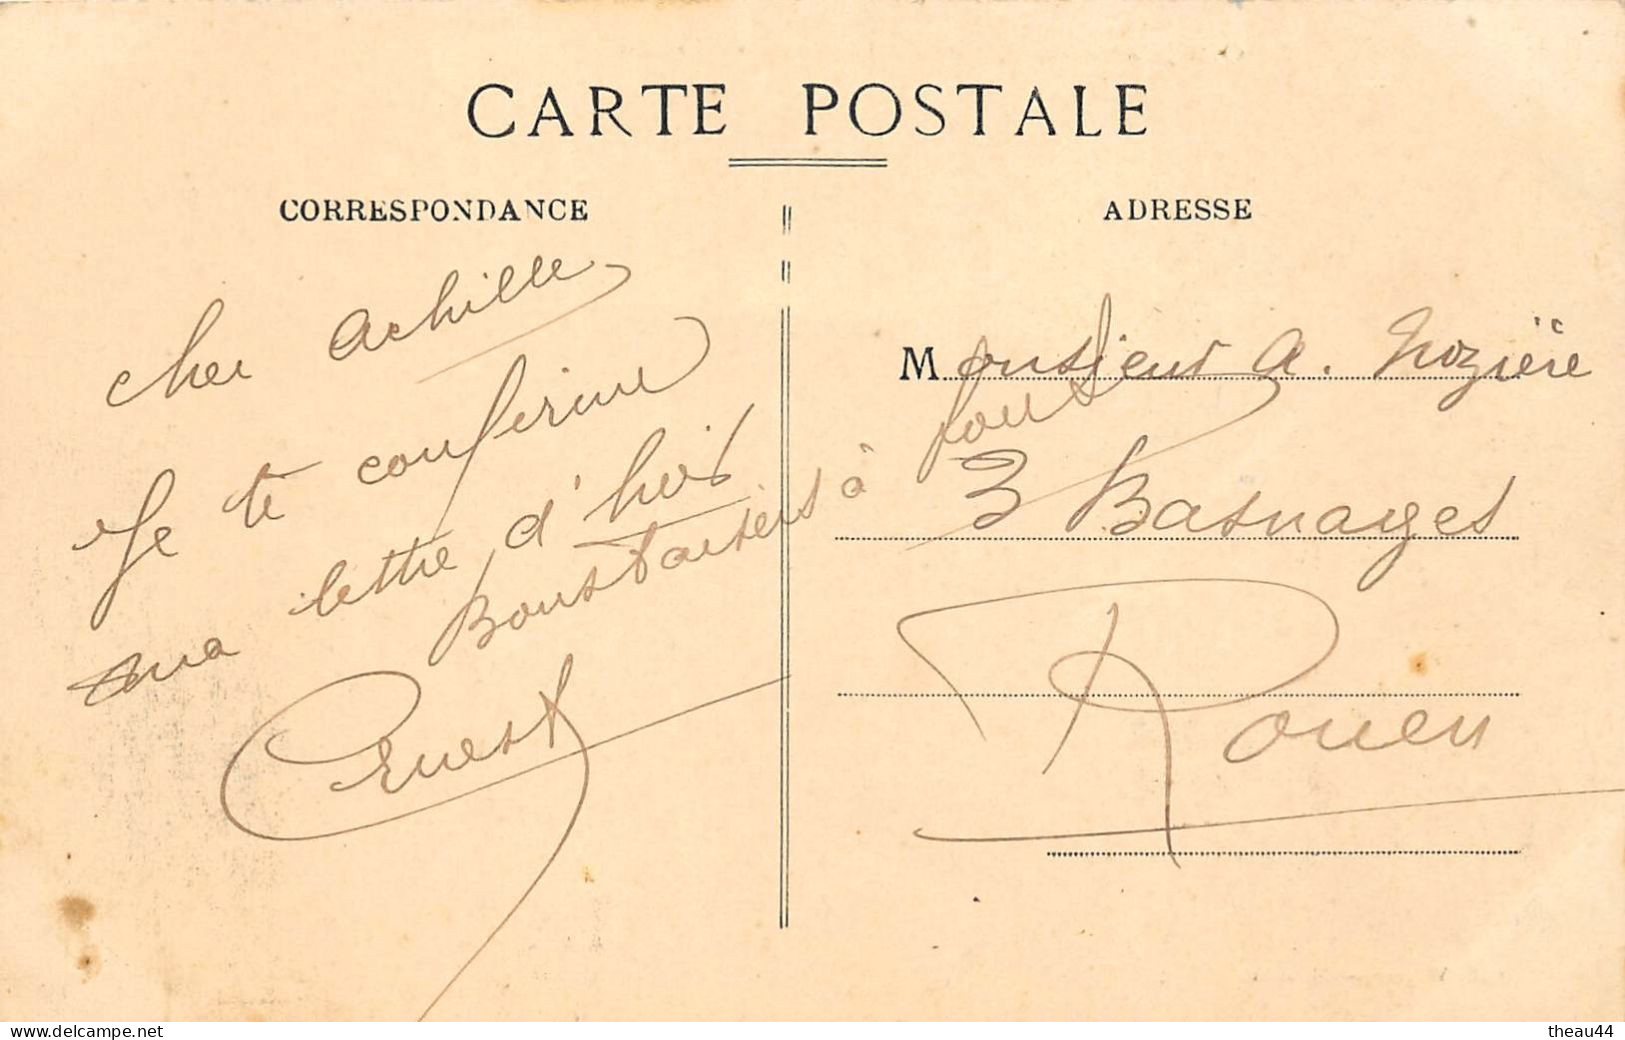 CARTE POSTALE
CORRESPONDANCE
cher Achille
Je te confirme
ma lettre d'hier
Bons baisers à tous
Ernest
ADRESSE
Monsieur A. Nozière
3 Basnages
Rouen
www.delcampe.net
theau44